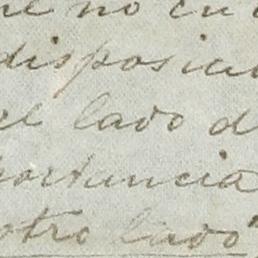 no en
disposici
el lado d
portuncia
otro lado"